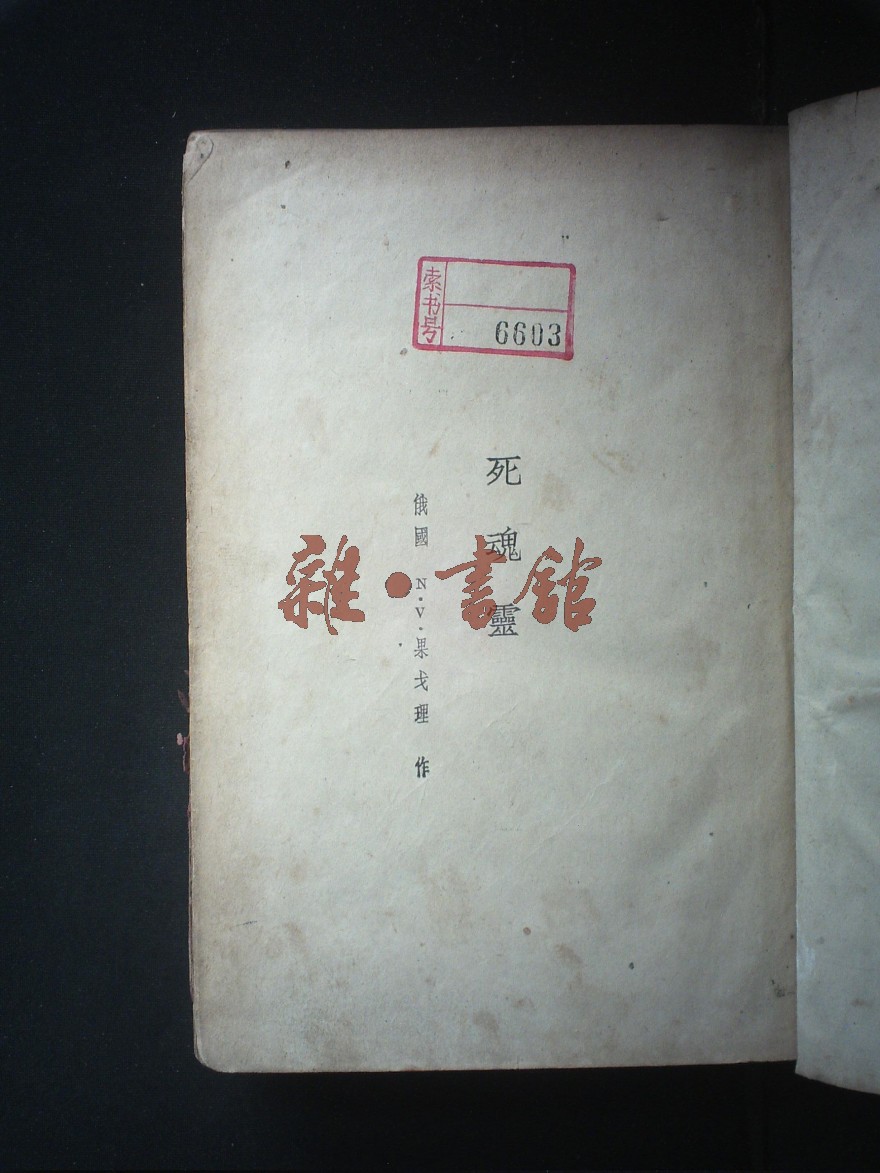 索书号
6603
死魂靈
俄國 N·V·果戈理 作
雜·書館